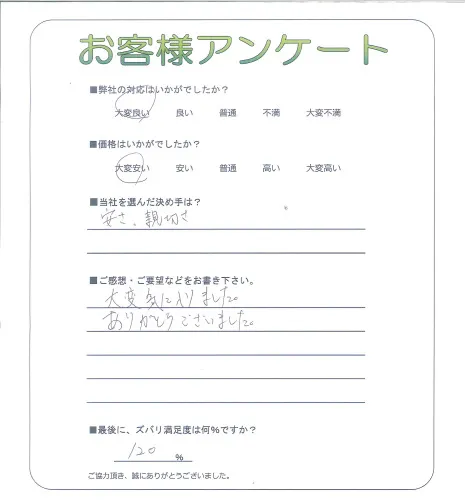 お客様アンケート
■弊社の対応はいかがでしたか？
大変良い 良い 普通 不満 大変不満
■価格はいかがでしたか？
大変安い 安い 普通 高い 大変高い
■当社を選んだ決め手は？
安さ、親切さ
■ご感想・ご要望などをお書き下さい。
大変気に入りました。
ありがとうございました。
■最後に、ズバリ満足度は何%ですか？
120 %
ご協力頂き、誠にありがとうございました。